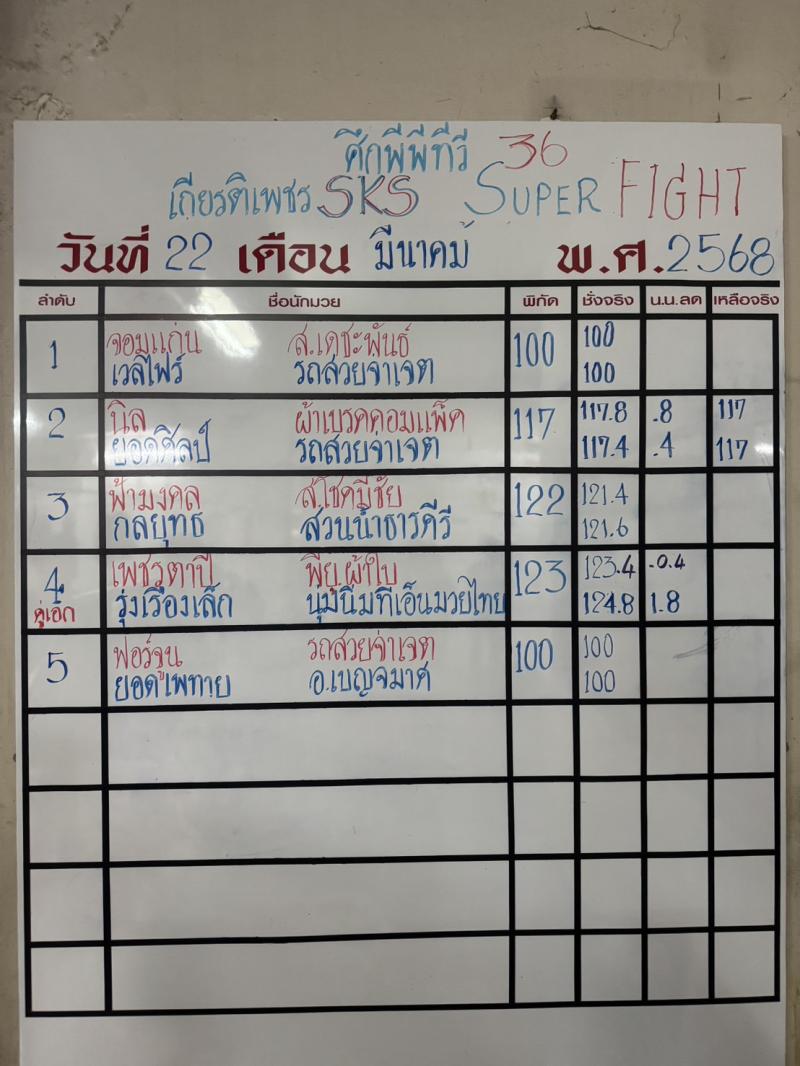 ศึกพีพีทีวี 36
เกียรติเพชร SKS SUPER FIGHT
วันที่ 22 เดือน มีนาคม พ.ศ.2568
ลำดับ ชื่อนักมวย พิกัด ชั่งจริง น.น.ลด เหลือจริง
1 จอมแก่น ส.เดชะพันธ์ 100 100
เวลไฟร์ รถสวยจ่าเจต 100
2 นิล ผ้าเบรคคอมแพ็ค 117 117.8 .8 117
ยอดศิลป์ รถสวยจ่าเจต 117.4 .4 117
3 ฟ้ามงคล ส.โชคมีชัย 122 121.4
กลยุทธ สวนน้ำธารคีรี 121.6
4 เพชรตาปี พียู.ผ้าใบ 123 123.4 .0.4
คู่เอก รุ่งเรืองเล็ก นุ่มนิ่มทีเอ็นมวยไทย 124.8 1.8
5 ฟอร์จูน รถสวยจ่าเจต 100 100
ยอดภูเพทาย อ.เบญจมาศ 100